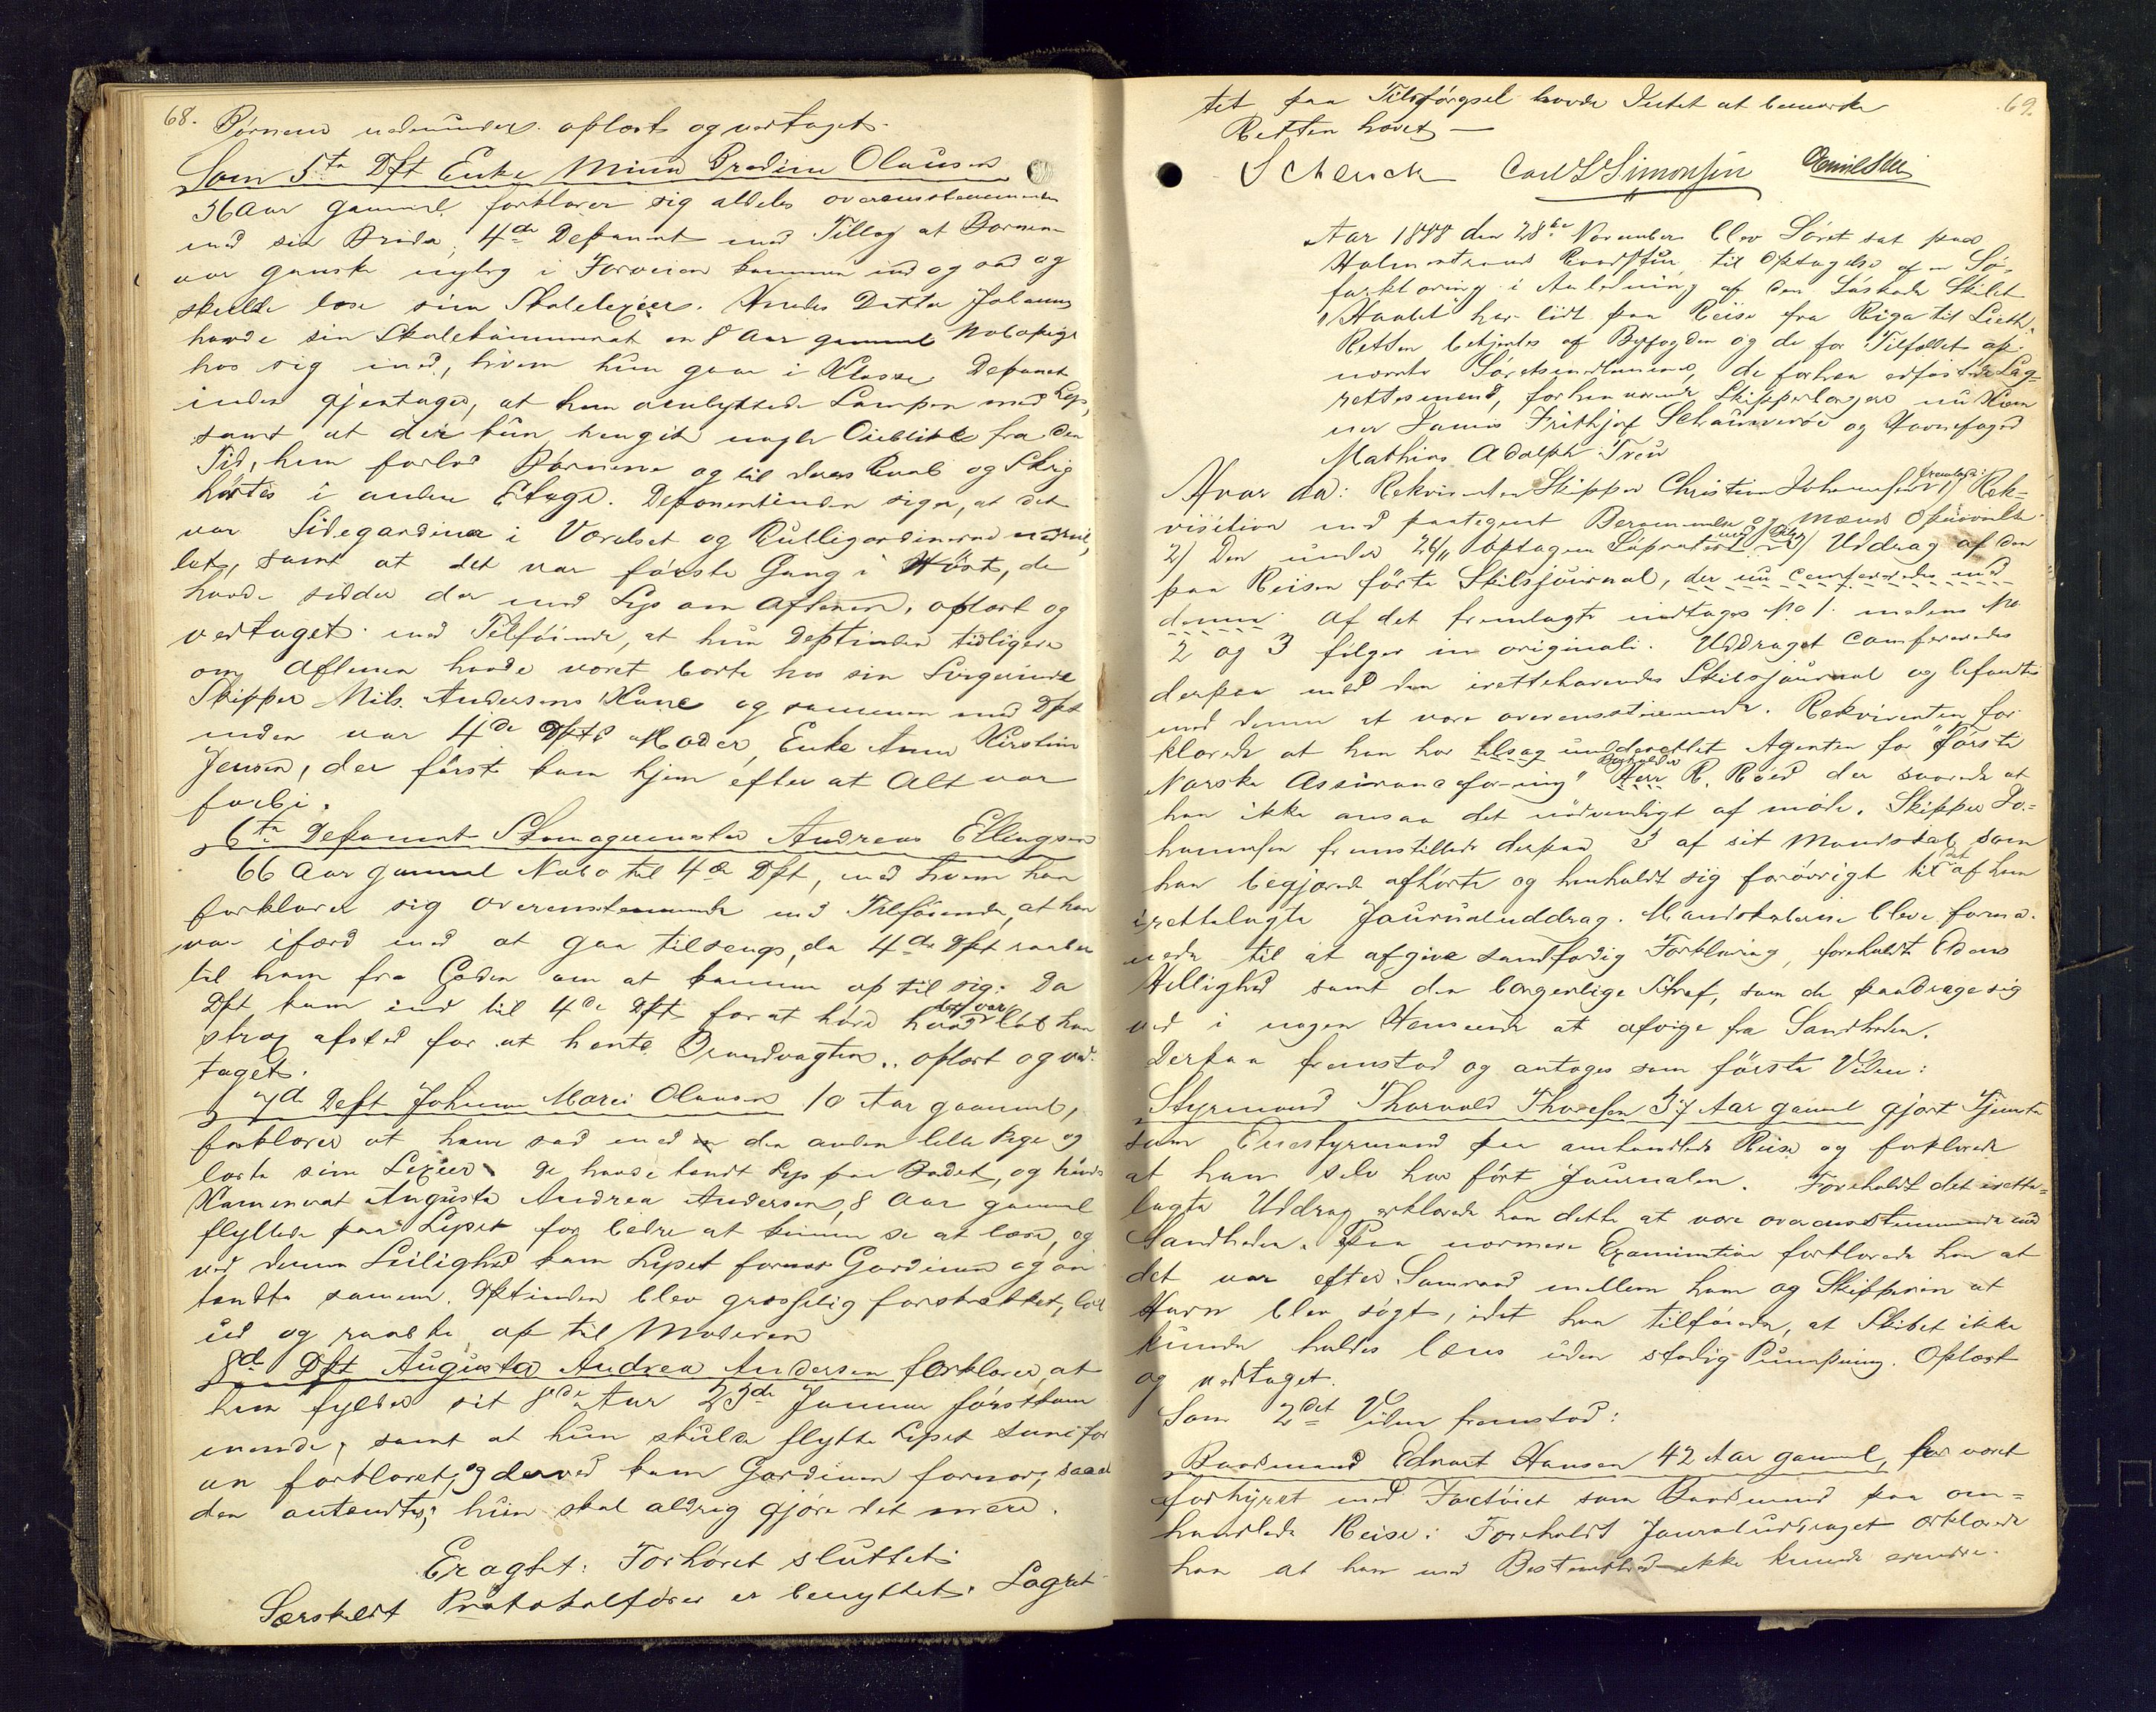 68.
Børnene nedenunder. oplæst og vedtaget.
Som 5te Dpt Enke Minna Bredine Olausen
36 Aar gammel forklarer sig aldeles overensstemmende
med sin Broder, 4de Deponent med Tillæg at Børnene
var ganske nylig i Forveien kommen ind og sad og
skulde læse sine Skolelexier. Hendes Datter Johanne
havde sin Skolekammerat en 8 Aar gammel Nabopige
hos sig ind, hvem hun gaar i Klasse. Deponent
inden gjentager, at hun ombyttede Lampen med Lys,
samt at der kun hengik nogle Øieblikke fra den
Tid, hun forlod Børnene og til deres Raab og Skrig
hørtes i anden Etage. Deponentinden siger, at det
var Sidegardiner i Værelset og Rullegardinerne nedrul,
let, samt at det var første Gang i Høst, de
havde siddet der med Lys om Aftenen. oplæst og
vedtaget med Tilføiende, at hun Deptinden tidligere
om Aftenen havde været borte hos sin Svigerinde
Skipper Nils Andersens Kone og sammen med Dpt
inden var 4de Dpts Moder, Enke Anne Kirstine
Jensen, der først kom hjem efter at Alt var
forbi.
6te Deponent Skomagermester Andreas Ellingsen
66 Aar gammel Nabo til 4de Dpt, med hvem han
forklarer sig overensstemmende med Tilføiende, at han
var ifærd med at gaa tilsengs, da 4de Dpt raaber
til ham fra Gaden om at komme op til sig. Da
Dpt kom ind til 4de Dpt for at høre hvad det var løb han
strax afsted for at hente Brandvagten.. oplæst og ved-
taget.
7de Deft Johanne Marie Olausen 10 Aar gammel,
forklarer at hun sad med den anden lille Pige og
læste sine Lexier. De havde tændt Lys paa Bordet, og hendes
Kammerat Augusta Andrea Andersen, 8 Aar gammel
flyttede paa Lyset for bedre at kunne se at læse, og
ved denne Leilighed kom Lyset fornær Gardinen og an
tændte samme. Dptinden blev græsselig forskrækket, løb
ud og raabte op til Moderen
8de Dpt Augusta Andrea Andersen forklarer, at
hun fylder sit 8de Aar 23de Januar førstkom
mende, samt at hun skulde flytte Lyset som for
an forklaret, og derved kom Gardinen fornær, saa at
den antændtes; hun skal aldrig gjøre det mere.
Eragtet: Forhøret sluttet.
Særskilt Protokolfører er benyttet. Lagret
69.
tet paa Tilspørgsel havde Intet at bemærke
Retten hævet —
Schenck Carl L Simonsen
Aar 1888 den 28de November blev Søret sat paa
Holmestrands Raadstue til Optagelse af en Sø-
forklaring i Anledning af den Søskade Skibet
"Haabet" har lidt paa Reise fra Riga til Lieth.
Retten betjentes af Byfogden og de for Tilfældet op-
nævnte Søretsmedlemmer, de forhen edfæstede Lag-
rettesmænd, forhenværende Skipperborgere nu Kæm
ner Janus Frithjof Schanverøe og Havnefoged
Mathias Adolph Treu
Hvor da: Rekvirenten Skipper Christian Johannesen fremlagde: 1) Rek-
visition med paategnet Berammelse og Mænds Opnævnelse
2) Den under 26/11 optagne Søprotest med Bilag 3) Uddrag af den
paa Reisen førte Skibsjournal, der nu confereredes med
denne. Af det fremlagte indtages No 1. medens No
2 og 3 følger in originali. Uddraget confereredes
derpaa med den irettehavendes Skibsjournal og befantes
med denne at være overensstemmende. Rekvirenten for
klarede at han har tilsag underrettet Agenten for "første
Norske Assuranceforning" Bogholder Herr R. Røed der svarede at
han ikke ansaa det nødvendigt af møde. Skipper Jo-
hannesen fremstillede derpaa 3 af sit Mandskab, som
han begjærede afhørte og henholdt sig forøvrigt til det af ham
irettelagte Journaluddrag. Mandskaberne bleve forma-
nede til at afgive sandfærdig Forklaring, foreholdt Edens
Hellighed samt den borgerlige Straf, som de paadrage sig
ved i nogen Henseende at afvige fra Sandheden.
Derpaa fremstod og antoges som første Vidne:
Styrmand Thorvald Thoresen 37 Aar gammel gjort Tjeneste
som Enestyrmand paa omhandlede Reise og forklarede
at han selv har ført Journalen. Foreholdt det irette-
lagte Uddrag erklærede han dette at være overensstemmende med
Sandheden. Paa nærmere Examination forklarede han at
det var efter Samraad mellem ham og Skipperen at
Havn blev søgt, idet han tilføiede, at Skibet ikke
kunde holdes læns uden stadig Pumpning. Oplæst
og vedtaget.
Som 2det Vidne fremstod:
Baadsmand Edvart Hansen 42 Aar gammel, har været
forhyret med Fartøiet som Baadsmand paa om-
handlede Reise. Foreholdt Journaludraget erklærede
han at han med Bestemthed ikke kunde erindre.